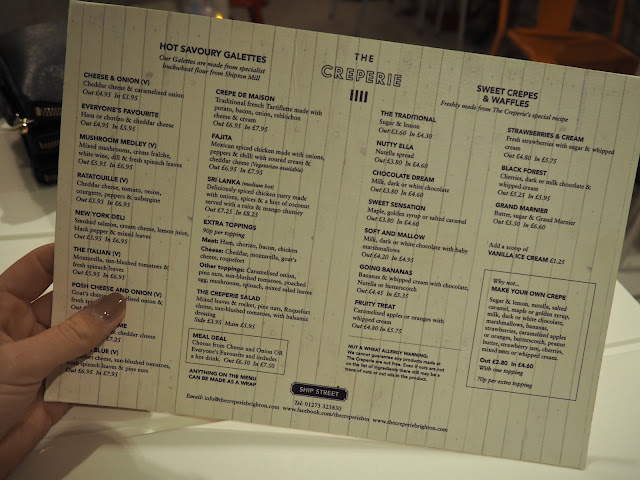 HOT SAVOURY GALETTES
Our Galettes are made from specialist
buckwheat flour from Shipton Mill
CHEESE & ONION (V)
Cheddar cheese & caramelised onion
Out £4.95 In £5.95
EVERYONE'S FAVOURITE
Ham or chorizo & cheddar cheese
Out £4.95 In £5.95
MUSHROOM MEDLEY (V)
Mixed mushrooms, crème fraîche,
white wine, dill & fresh spinach leaves
Out £5.95 In £6.95
RATATOUILLE (V)
Cheddar cheese, tomato, onion,
courgette, peppers & aubergine
Out £5.95 In £6.95
NEW YORK DELI
Smoked salmon, cream cheese, lemon juice,
black pepper & mixed leaves
Out £5.95 In £6.95
THE ITALIAN (V)
Mozzarella, sun-blushed tomatoes &
fresh spinach leaves
Out £5.95 In £6.95
POSH CHEESE AND ONION (V)
Goat's cheese, onion &
fresh
& cheddar cheese
In £7.25
BLUE (V)
cheese, sun-blushed tomatoes,
leaves & pine nuts
Out £6.95 In £7.95
CREPE DE MAISON
Traditional french Tartiflette made with
potato, bacon, onion, reblochon
cheese & cream
Out £6.95 In £7.95
FAJITA
Mexican spiced chicken made with onions,
peppers & chilli with soured cream &
cheddar cheese (Vegetarian available)
Out £6.95 In £7.95
SRI LANKA (medium hot)
Deliciously spiced curry made
with onions, spices & a hint of coconut
served with a raita & mango chutney
Out £7.25 In £8.25
EXTRA TOPPINGS
90p per topping
Meat: Ham, chorizo, bacon, chicken
Cheese: Cheddar, mozzarella, goat's
cheese, roquefort
Other toppings: Caramelised onion,
pine nuts, sun-blushed tomatoes, poached
egg, mushrooms, spinach, mixed salad leaves
THE CREPERIE SALAD
Mixed leaves & rocket, pine nuts, Roquefort
cheese, sun-blushed tomatoes, with balsamic
dressing
Side £3.95 Main £5.95
MEAL DEAL
Choose from Cheese and Onion OR
Everyone's Favourite and includes
a hot drink. Out £6.50 In £7.50
ANYTHING ON THE MENU
CAN BE MADE AS A WRAP
THE
CREPERIE
SWEET CREPES
& WAFFLES
Freshly made from The Creperie's special recipe
THE TRADITIONAL
Sugar & lemon
Out £3.60 In £4.30
NUTTY ELLA
Nutella spread
Out £3.80 In £4.60
CHOCOLATE DREAM
Milk, dark or white chocolate
Out £3.80 In £4.60
SWEET SENSATION
Maple, golden syrup or salted caramel
Out £3.80 In £4.60
SOFT AND MALLOW
Milk, dark or white chocolate with baby
marshmallows
Out £4.20 In £4.95
GOING BANANAS
Bananas & whipped cream with chocolate,
Nutella or butterscotch
Out £4.45 In £5.35
FRUITY TREAT
Caramelised apples or oranges with
whipped cream
Out £4.80 In £5.75
NUT & WHEAT ALLERGY WARNING:
We cannot guarantee any products made at
The Creperie are nut free. Even if nuts are not
on the list of ingredients there still may be a
trace of nuts or nut oils within the product.
STRAWBERRIES & CREAM
Fresh strawberries with sugar & whipped
cream
Out £4.80 In £5.75
BLACK FOREST
Cherries, dark or milk chocolate &
whipped cream
Out £5.25 In £5.95
GRAND MARNIER
Butter, sugar & Grand Marnier
Out £5.50 In £6.60
Add a scoop of
VANILLA ICE CREAM £1.25
Why not...
MAKE YOUR OWN CREPE
Sugar & lemon, nutella, salted
caramel, maple or golden syrup,
milk, dark or white chocolate,
marshmallows, bananas,
strawberries, caramelised apples
or oranges, butterscotch, peanut
butter, strawberry jam, cherries,
mixed nuts or whipped cream.
Out £2.80 In £4.60
With one topping
70p per extra topping
SHIP STREET
Tel: 01273 323830
Email: info@thecreperiebrighton.com www.facebook.com/thecreperiebtn www.thecreperiebrighton.com